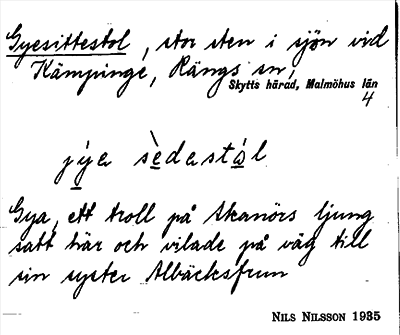 Gyesittestol, stor sten i sjön vid
Kämpinge, Rängs sn,
Skytts härad, Malmöhus län
4
jýa sèdastál
Gya, ett troll på Skanörs ljung
satt här och vilade på väg till
sin syster Albäcksfrun
NILS NILSSON 1935